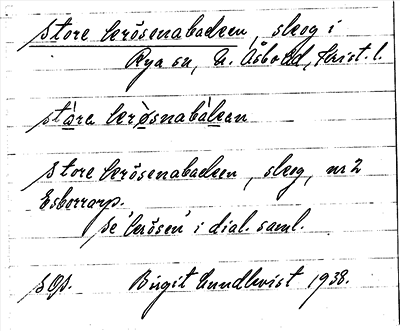 store krösenabacken, skog i
Rya sn, N. Åsbo hd, Krist. l.
stǡra krø̀snabàkan
store krösenabacken, skog, nr 2
Esborrarp.
se 'krösen' i dial. saml.
sOp. Birgit Lundkvist 1938.